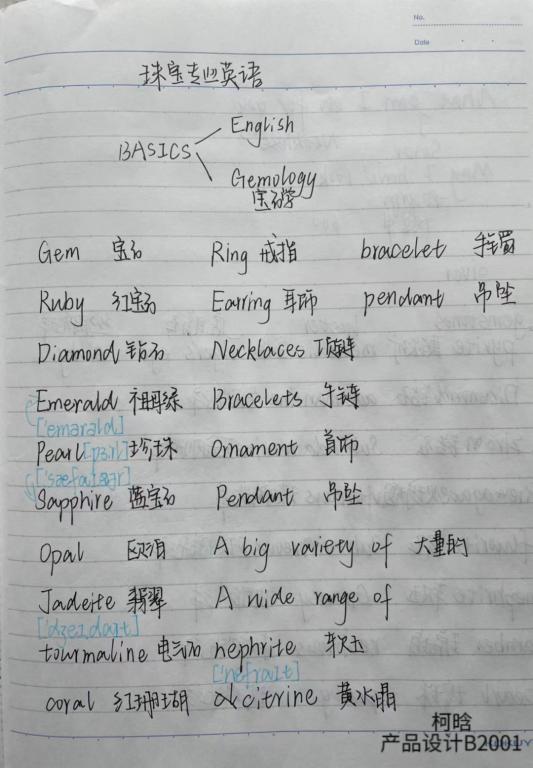 No.
Date
珠宝专业英语
English
BASICS
Gemology
宝石学
Gem 宝石 Ring 戒指 bracelet 手镯
Ruby 红宝石 Earring 耳饰 pendant 吊坠
Diamond 钻石 Necklaces 项链
Emerald 祖母绿 Bracelets 手链
['emərəld]
Pearl [pɜːl] 珍珠 Ornament 首饰
['sæfaɪər]
Sapphire 蓝宝石 Pendant 吊坠
Opal 欧泊 A big variety of 大量的
Jadeite 翡翠 A wide range of
['dʒeɪdaɪt]
tourmaline 电气石 nephrite 软玉
['nefraɪt]
coral 红珊瑚 citrine 黄水晶
柯晗
产品设计B2001